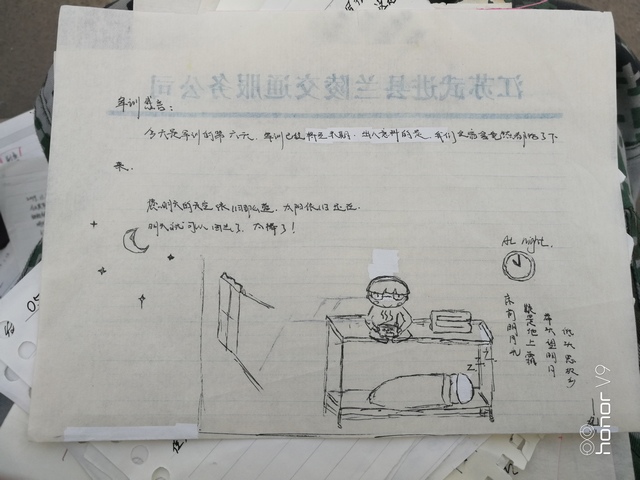 江苏武进县兰陵交通服务公司
军训感言:
今天是军训的第六天,军训已经将近末期,出人意料的是,我们文密密竟然幸存了下
来。
愿明天的天空依旧那么蓝,太阳依旧
明天就可以回去了,太棒了!
At night.
床前明月光
疑是地上霜
举头望明月
低头思故乡
Z
Z
honor V9